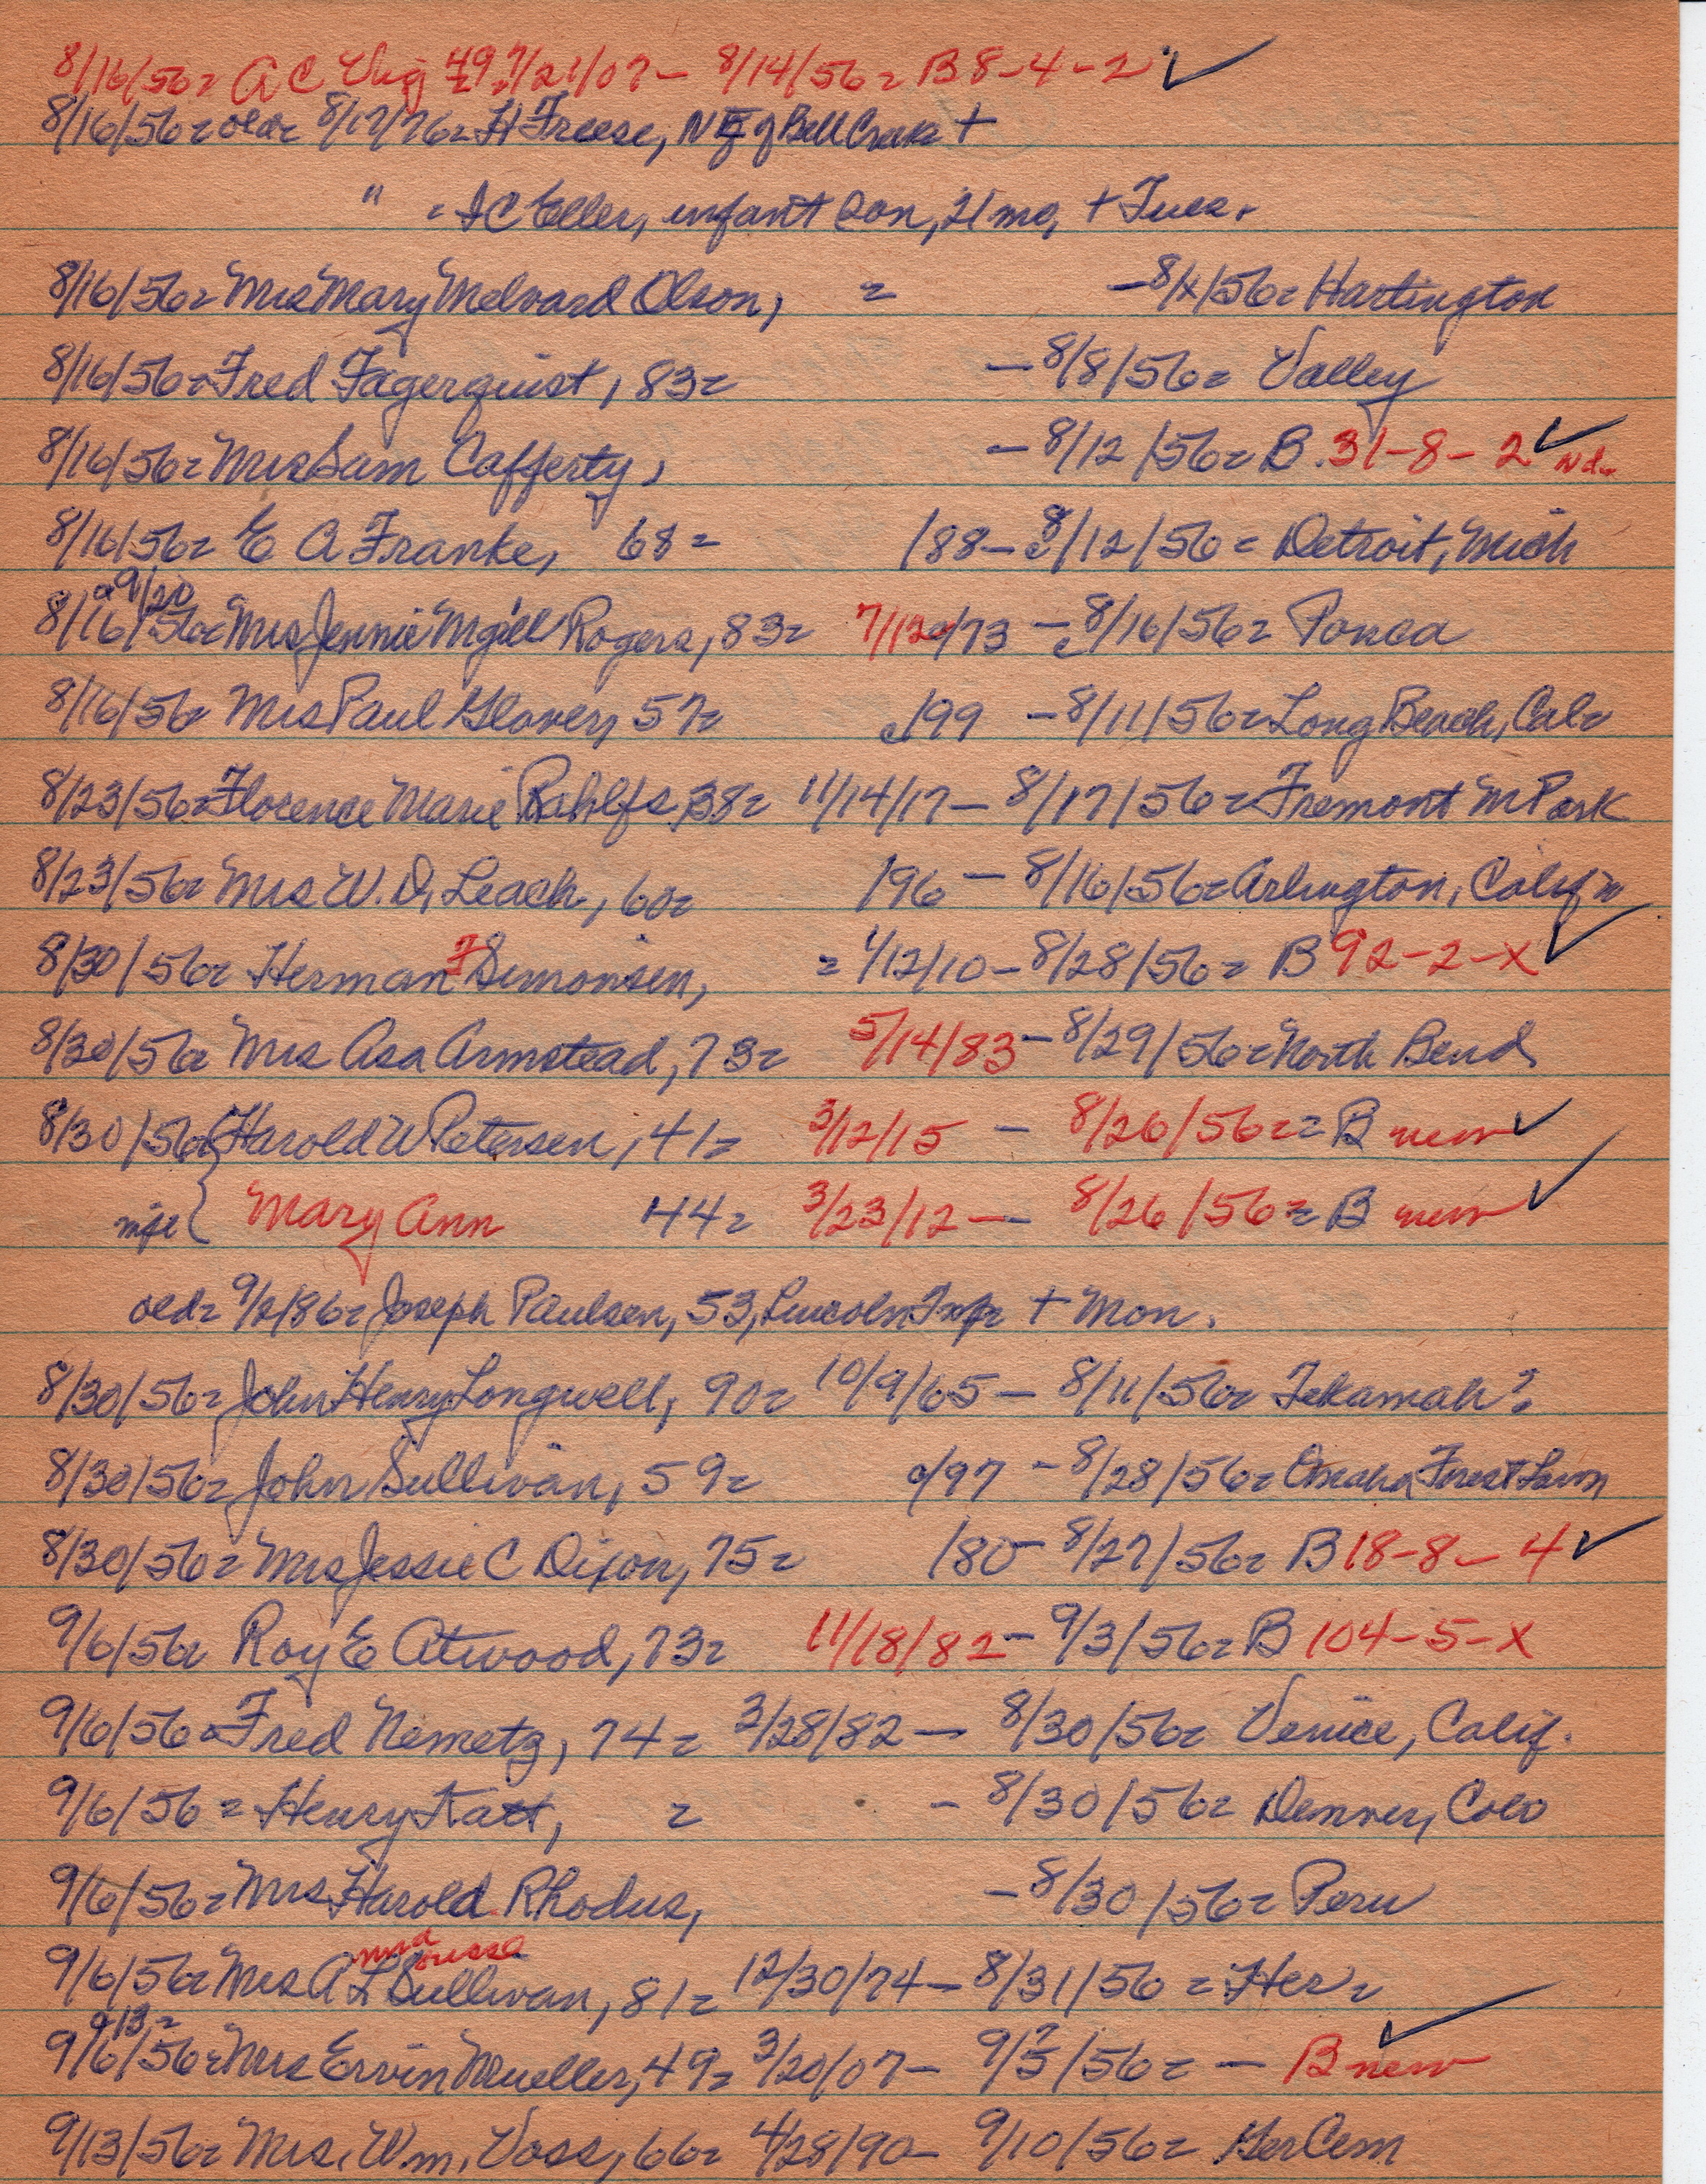 8/16/56= A C 49= 7/21/07- 8/14/56= B 8-4-2
8/16/56= old= 8/17/76= H Freese, NE of Bell Creek +
" = I C Eller, infant son, 21 mo, + Tues.
8/16/56= Mrs Mary Melvard Olson, = -8/x/56= Hartington
8/16/56= Fred Fagerquist, 83= -8/8/56= Valley
8/16/56= Mrs Sam Cafferty, -8/12/56= B. 31-8-2 Nd.
8/16/56= E A Franke, 68= /88- 8/12/56= Detroit, Mich
9/20
8/16/56= Mrs Jennie Mgill Rogers, 83= 7/12/73 - c8/16/56= Ponca
8/16/56= Mrs Paul Glover, 57= c/99 -8/11/56= Long Beach, Cal=
8/23/56= Florence Marie Rahlfs, 38= 11/14/17- 8/17/56= Fremont M Park
8/23/56= Mrs W. D. Leach, 60= /96- 8/16/56= Arlington, Calif'n
8/30/56= Herman F Simonsen, = 1/12/10-8/28/56= B 92-2-X
8/30/56= Mrs Asa Armstead, 73= 5/14/83-8/29/56= North Bend
8/30/56= { Harold W Petersen, 41= 3/12/15 - 8/26/56== B new
wife { Mary Ann 44= 3/23/12-- 8/26/56= B new
old= 9/2/86= Joseph Paulsen, 53, Lincoln Twp= + Mon.
8/30/56= John Henry Longwell, 90= 10/9/65- 8/11/56= Tekamah?
8/30/56= John Sullivan, 59= c/97 -8/28/56= Omaha Forest Lawn
8/30/56= Mrs Jessie C Dixon, 75= /80- 8/27/56= B 18-8-4
9/6/56= Roy E Atwood, 73= 11/18/82- 9/3/56= B 104-5-X
9/6/56= Fred Nemetz, 74= 3/28/82- 8/30/56= Venice, Calif.
9/6/56= Henry Katt, = - 8/30/56= Denver, Colo
9/6/56= Mrs Harold Rhodus, -8/30/56= Peru
9/6/56= Mrs A L Sullivan, 81= 12/30/74- 8/31/56= Her=
9/13=
9/6/56= Mrs Ervin Mueller, 49= 3/20/07- 9/5?/56= - B new
9/13/56= Mrs. Wm. Voss, 66= 4/28/90- 9/10/56= Ger Cem